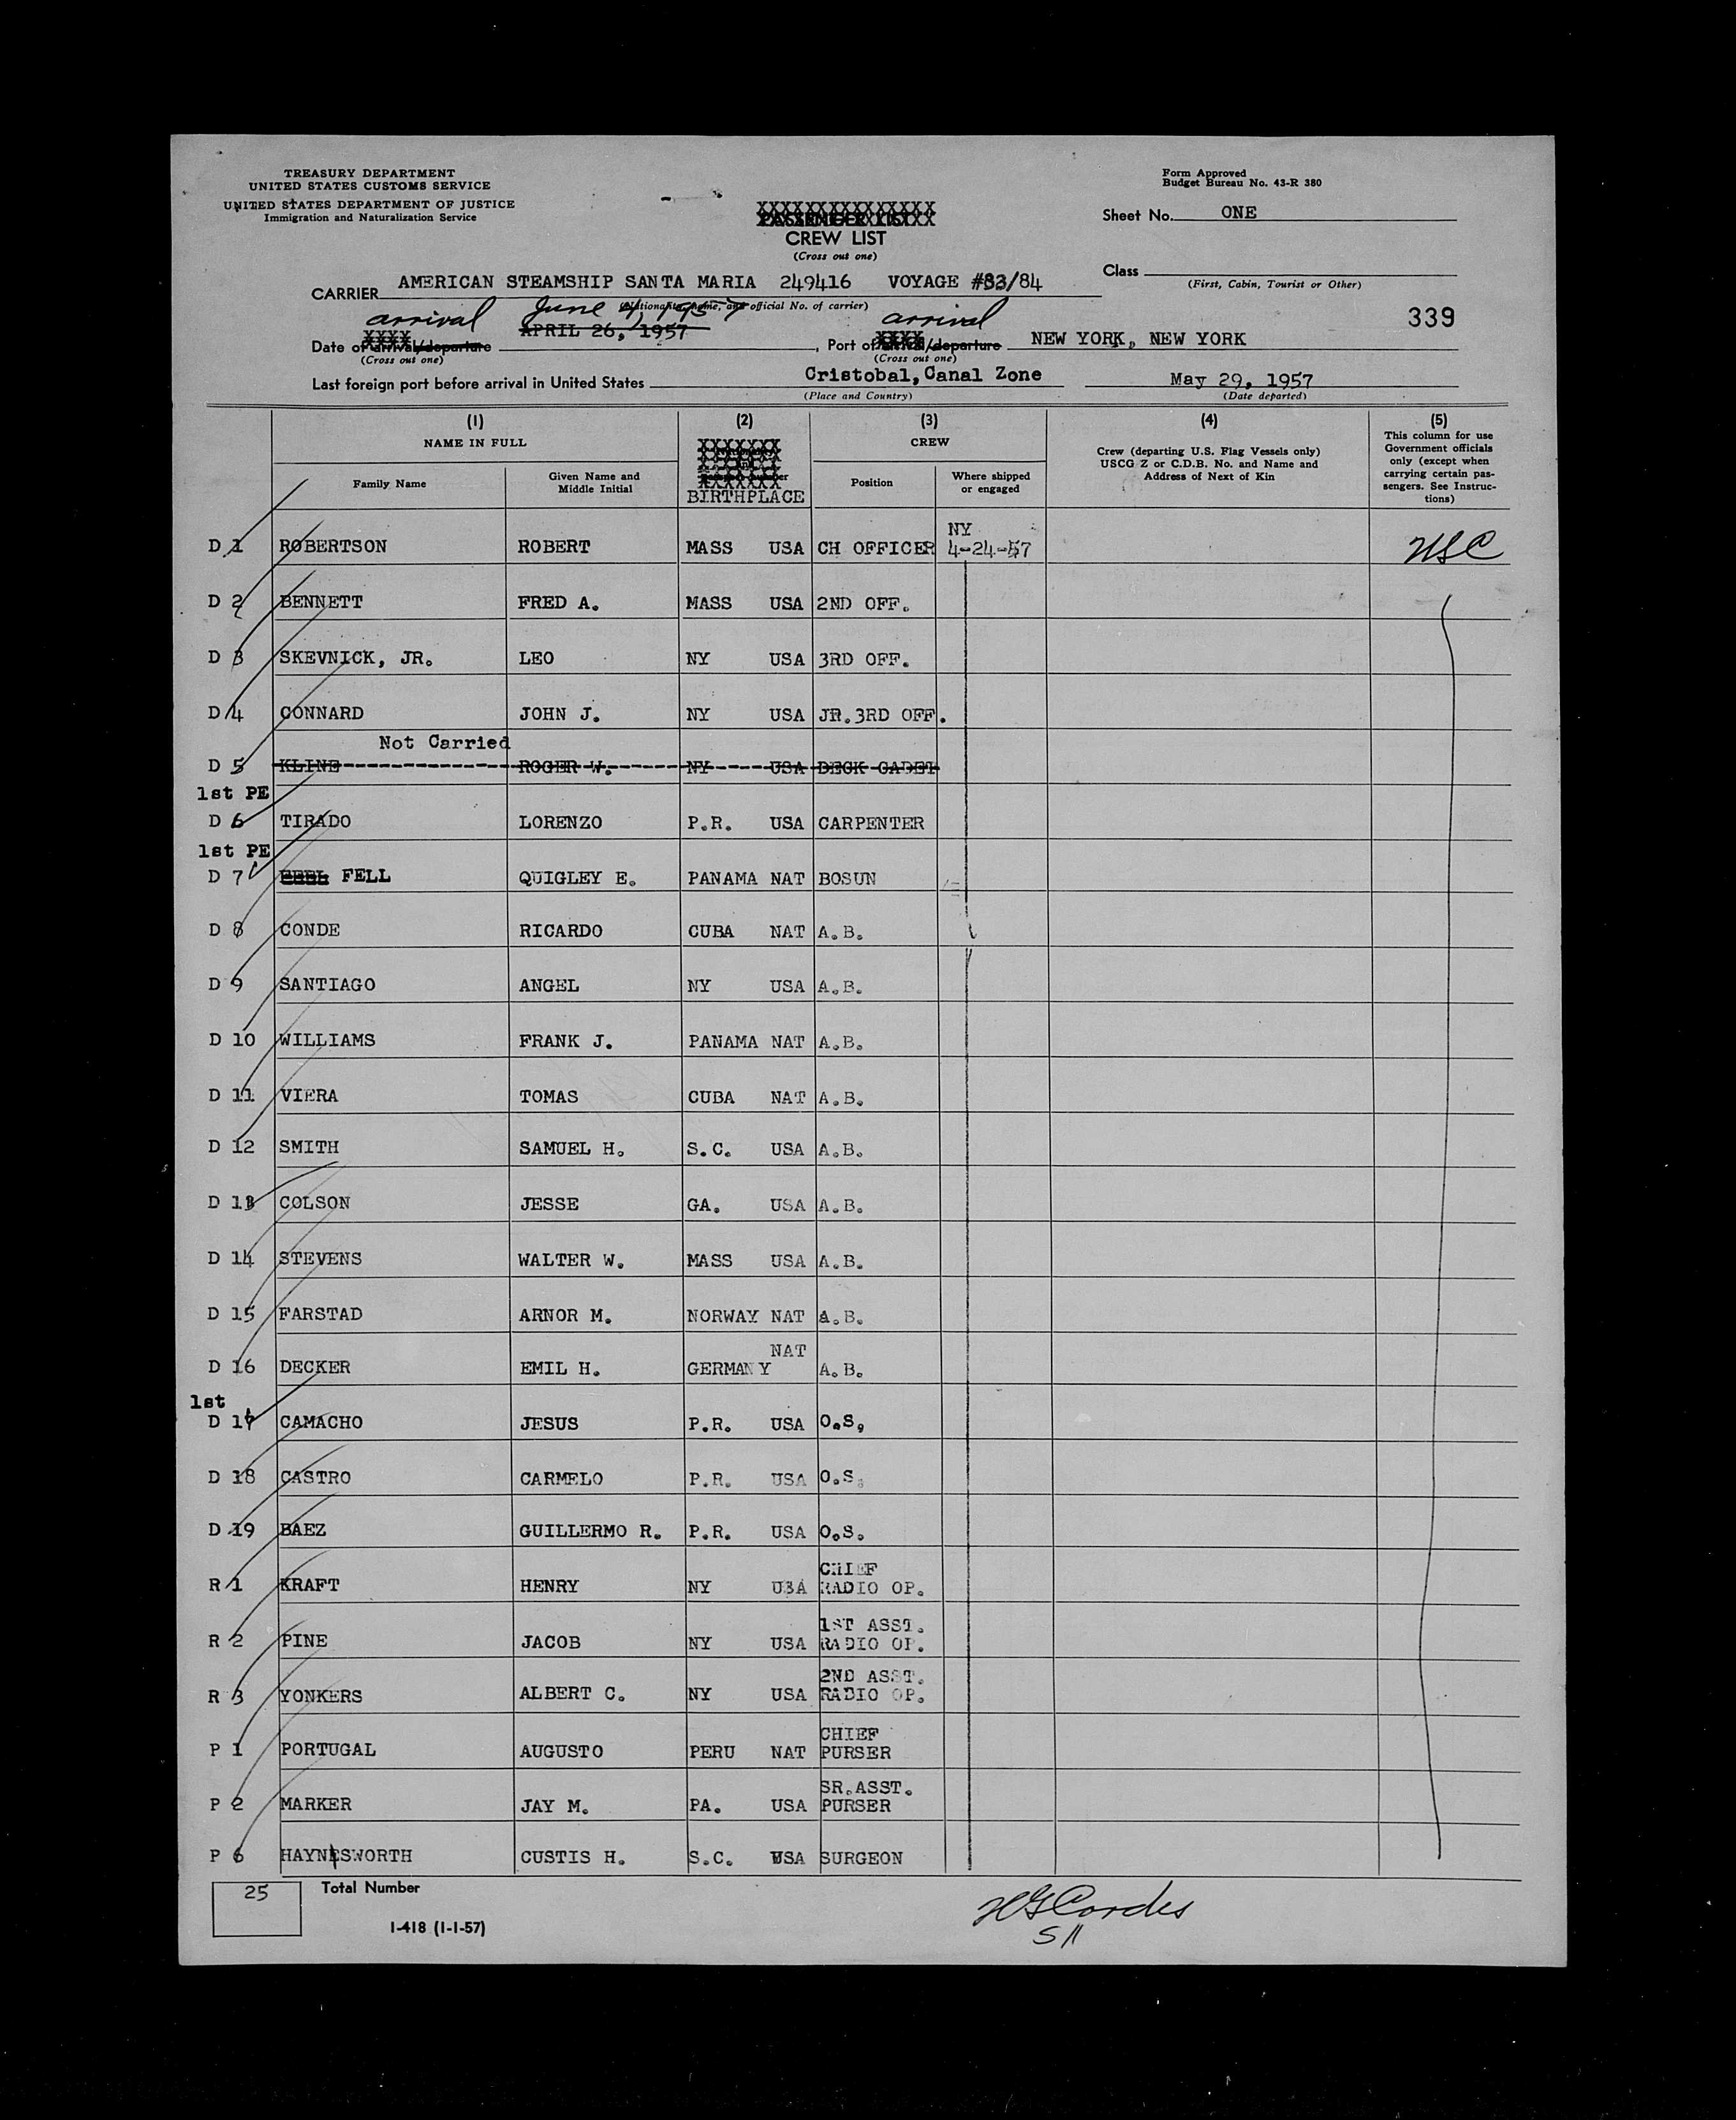 TREASURY DEPARTMENT
UNITED STATES CUSTOMS SERVICE
UNITED STATES DEPARTMENT OF JUSTICE
Immigration and Naturalization Service
Form Approved
Budget Bureau No. 43-R 380
PASSENGER LIST
CREW LIST
(Cross out one)
Sheet No. ONE
Class
(First, Cabin, Tourist or Other)
CARRIER AMERICAN STEAMSHIP SANTA MARIA 249416 VOYAGE #83/84
(Nationality, name, and official No. of carrier)
339
arrival June 4, 1957 arrival
Date of arrival/departure APRIL 26, 1957, Port of arrival/departure NEW YORK, NEW YORK
(Cross out one) (Cross out one)
Last foreign port before arrival in United States Cristobal, Canal Zone May 29, 1957
(Place and Country) (Date departed)
(1) (2) (3) (4) (5)
NAME IN FULL CREW
Family Name Given Name and Middle Initial BIRTHPLACE Position Where shipped or engaged
Crew (departing U.S. Flag Vessels only)
USCG Z or C.D.B. No. and Name and
Address of Next of Kin
This column for use
Government officials
only (except when
carrying certain pas-
sengers. See Instruc-
tions)
NY
D 1 ROBERTSON ROBERT MASS USA CH OFFICER 4-24-57
D 2 BENNETT FRED A. MASS USA 2ND OFF.
D 3 SKEVNICK, JR. LEO NY USA 3RD OFF.
D 4 CONNARD JOHN J. NY USA JR.3RD OFF.
Not Carried
D 5 KLINE ROGER W. NY USA DECK CADET
1st PE
D 6 TIRADO LORENZO P.R. USA CARPENTER
1st PE
D 7 FELL QUIGLEY E. PANAMA NAT BOSUN
D 8 CONDE RICARDO CUBA NAT A.B.
D 9 SANTIAGO ANGEL NY USA A.B.
D 10 WILLIAMS FRANK J. PANAMA NAT A.B.
D 11 VIERA TOMAS CUBA NAT A.B.
D 12 SMITH SAMUEL H. S.C. USA A.B.
D 13 COLSON JESSE GA. USA A.B.
D 14 STEVENS WALTER W. MASS USA A.B.
D 15 FARSTAD ARNOR M. NORWAY NAT A.B.
NAT
D 16 DECKER EMIL H. GERMANY A.B.
1st
D 17 CAMACHO JESUS P.R. USA O.S.
D 18 CASTRO CARMELO P.R. USA O.S.
D 19 BAEZ GUILLERMO R. P.R. USA O.S.
CHIEF
R 1 KRAFT HENRY NY USA RADIO OP.
1ST ASST.
R 2 PINE JACOB NY USA RADIO OP.
2ND ASST.
R 3 YONKERS ALBERT C. NY USA RADIO OP.
CHIEF
P 1 PORTUGAL AUGUSTO PERU NAT PURSER
SR.ASST.
P 2 MARKER JAY M. PA. USA PURSER
P 6 HAYNESWORTH CUSTIS H. S.C. USA SURGEON
25 Total Number
I-418 (1-1-57)